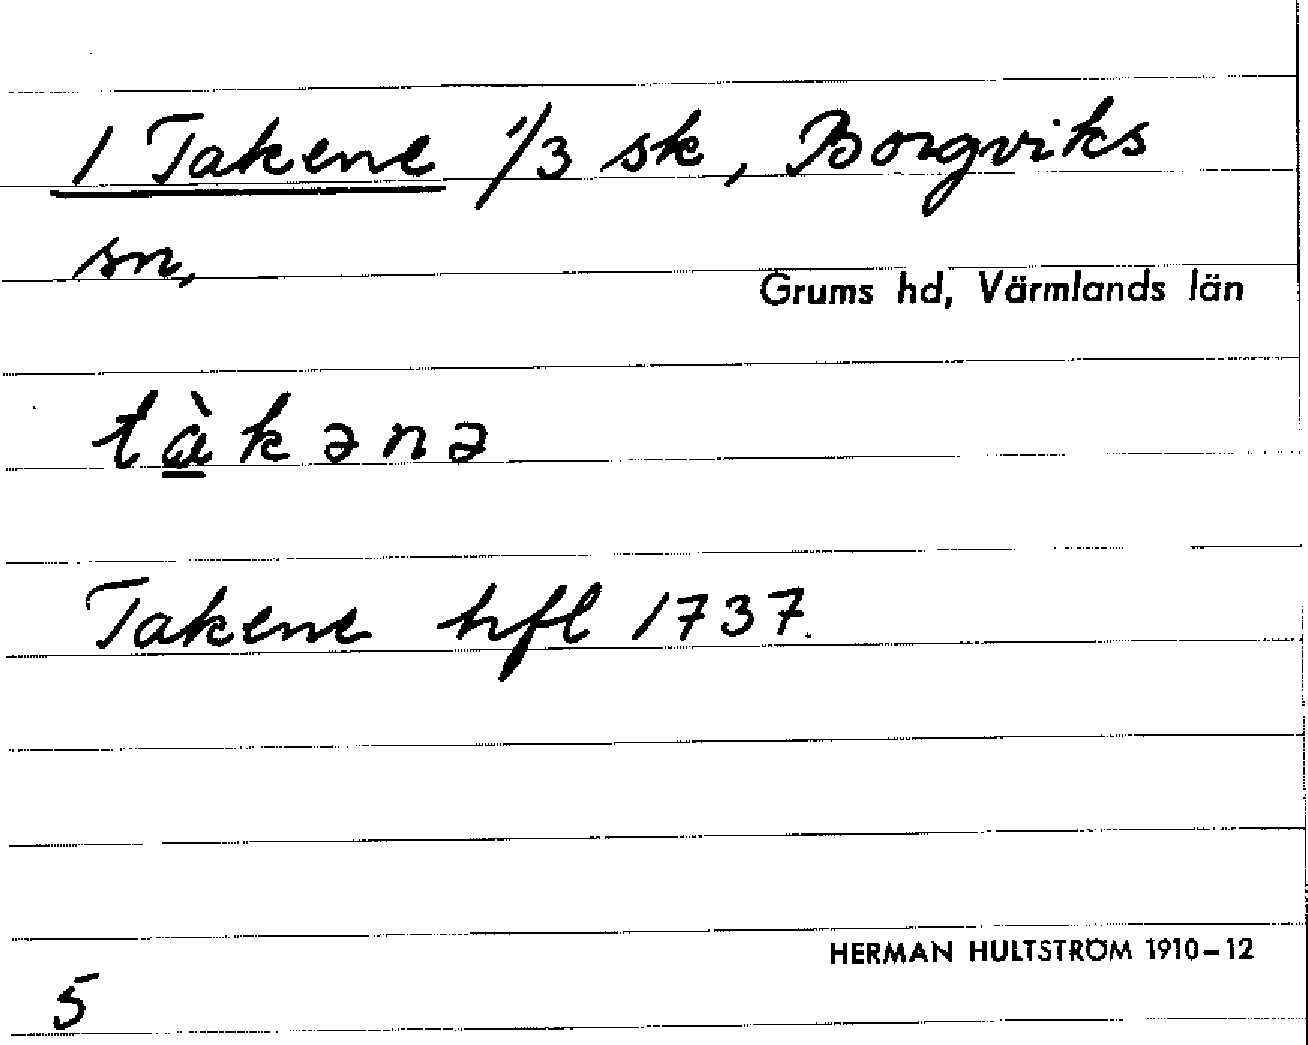 1 Takene 1/3 sk, Borgviks
sn,
Grums hd, Värmlands län
tàkənə
Takene hfl 1737.
HERMAN HULTSTRÖM 1910–12
5